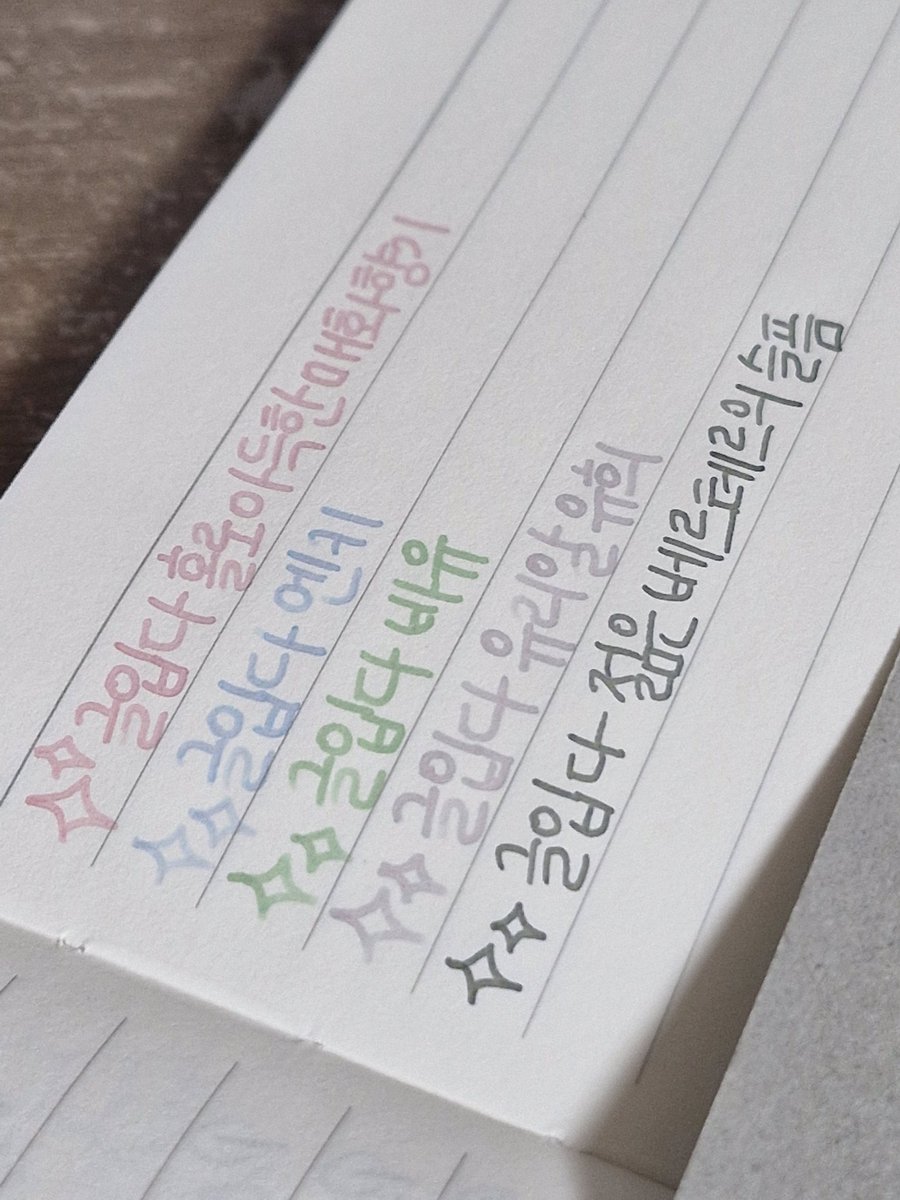 글입다 홀로아득한매화향기
글입다 엔키
글입다 바유
글입다 유리알유희
글입다 젊은베르테르의슬픔